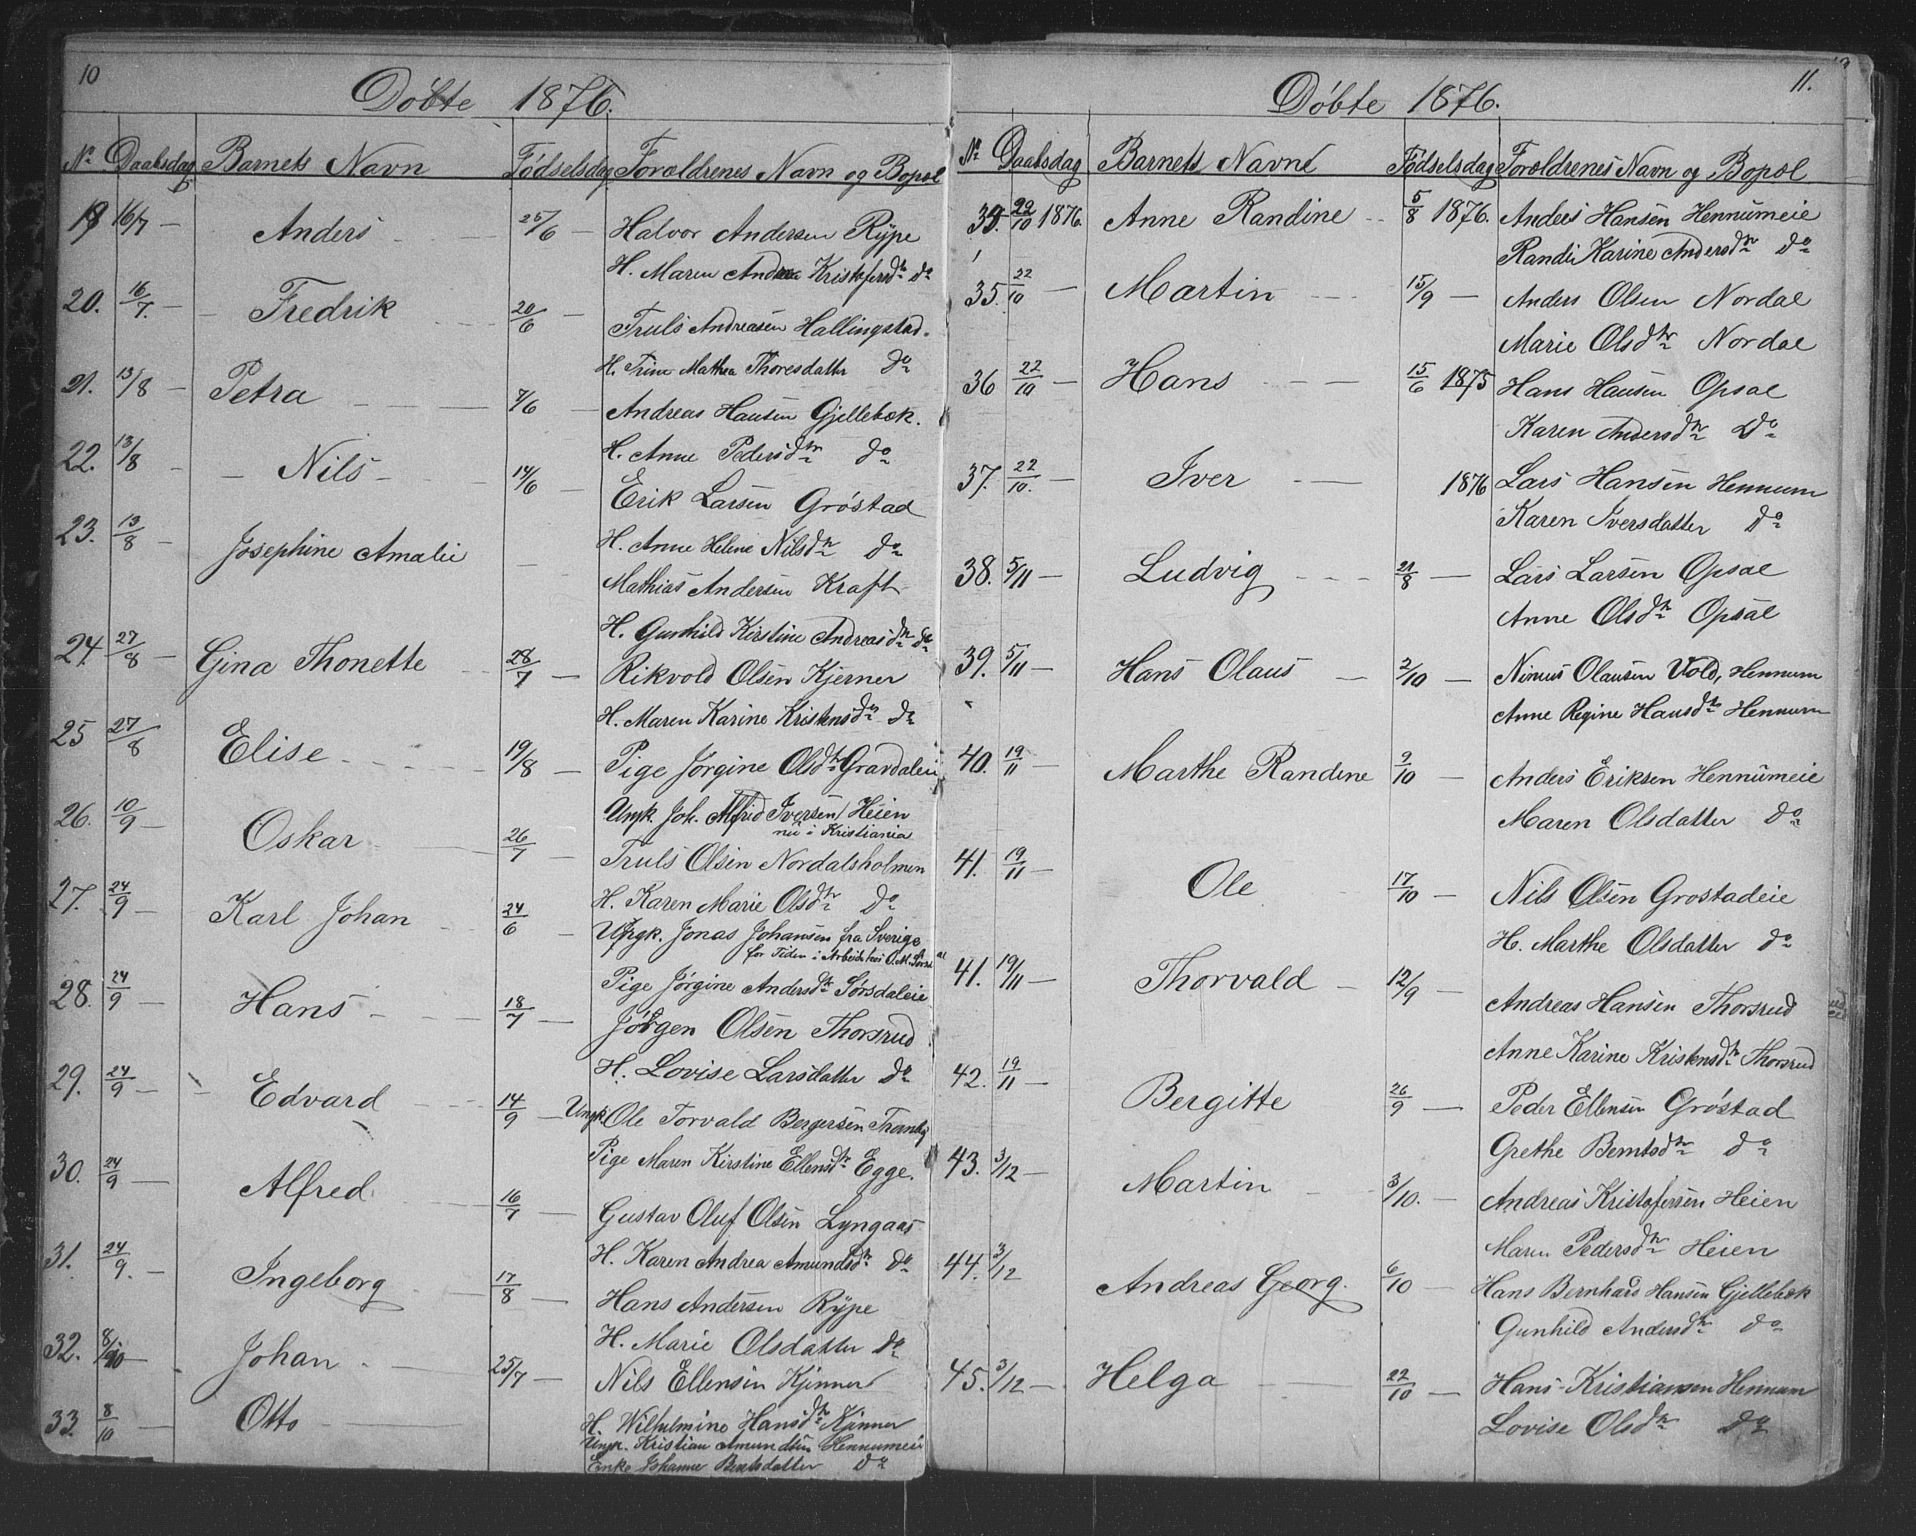 10
Döbte 1876.
No Daabsdag Barnets Navn Födselsdag Forældrenes Navn og Bopæl
19 16/7 — Anders 25/6 — Halvor Andersen Rÿpe
H. Maren Andrea Kristofersdtr do
20. 16/7. — Fredrik 20/6 — Truls Andreasen Hallingstad.
H. Trine Mathea Thoresdatter do
21. 13/8 — Petra 7/6 — Andreas Hansen Gjellebæk.
H. Anne Pedersdtr do
22. 13/8 — Nils 14/6 — Erik Larsen Gröstad
H. Anne Helene Nilsdtr do
23. 13/8 — Josephine Amalie — Mathias Andersen Kraft
H. Gunhild Kirstine Andreasdtr do
24. 27/8 — Gina Thonette 28/7 — Rikvold Olsen Kjerner
H. Maren Karine Kristensdtr do
25 27/8 — Elise 19/8 — Pige Jörgine Olsdtr Gravdaleie
Ungk. Joh. Alfrid Iversen Heien
nu i Kristiania
26. 10/9 — Oskar 26/7 — Truls Olsen Nordalsholmen
H. Karen Marie Olsdtr do
27. 24/9 — Karl Johan 24/6 — Ungk. Jonas Johansen fra Sverige
for Tiden i Arbeide hos O. M.
Pige Jörgine Andersdtr Sörsdaleie
28. 24/9 — Hans 18/7 — Jörgen Olsen Thorsrud
H. Lovise Larsdatter do
29. 24/9 — Edvard 14/9 — Ungk Ole Torvald Bergersen Thornby
Pige Maren Kirstine Ellensdtr Egge.
30. 24/9 — Alfred 16/7 — Gustav Oluf Olsen Lyngaas
H. Karen Andrea Amundsdtr do
31. 24/9. — Ingeborg 17/8 — Hans Andersen Rÿpe
H. Marie Olsdatter do
32. 8/10 — Johan 25/7 — Nils Ellensen Kjinner
H. Wilhelmine Hansdtr Kjinner
33. 8/10 — Otto — Ungk. Kristian Amundsen Hennumeie
Enke Johanne Berthsdatter do
11.
Döbte 1876.
No Daabsdag Barnets Navne Födselsdag Forældrenes Navn og Bopæl
22/10 1876. Anne Randine 5/8 1876. Anders Hansen Hennumeie
Randi Karine Andersdtr do
35. 22/10 — Martin 15/9 — Anders Olsen Nordal
Marie Olsdtr Nordal
36 22/10 — Hans 15/6 1875 Hans Hansen Opsal
Karen Andersdtr Do
37. 22/10. — Iver — 1876 Lars Hansen Hennum
Karen Iversdatter do
38. 5/11 — Ludvig 21/8 — Lars Larsen Opsal
Anne Olsdtr Opsal
39. 5/11 — Hans Olaus 2/10 — Nimus Olausen Vold, Hennum
Anne Regine Hansdtr Hennum
40. 19/11 — Marthe Randine 9/10 — Anders Eriksen Hennumeie
Maren Olsdatter do
41. 19/11 — Ole 17/10 — Nils Olsen Grostadeie
H. Marthe Olsdatter do
41. 19/11 — Thorvald 12/9 — Andreas Hansen Thorsrud
Anne Karine Kristensdtr Thorsrud
42. 19/11 — Bergitte 26/9 — Peder Ellensen Gröstad
Grethe Berntsdtr do
43. 3/12 — Martin 3/10. — Andreas Kristofersen Heien
Maren Pedersdtr Heien
44. 3/12 Andreas Georg. 6/10 — Hans Bernhard Hansen Gjellebæk
Gunhild Andersdtr do
45. 3/12 — Helga 22/10 — Hans Kristiansen Hennum
Lovise Olsdtr do